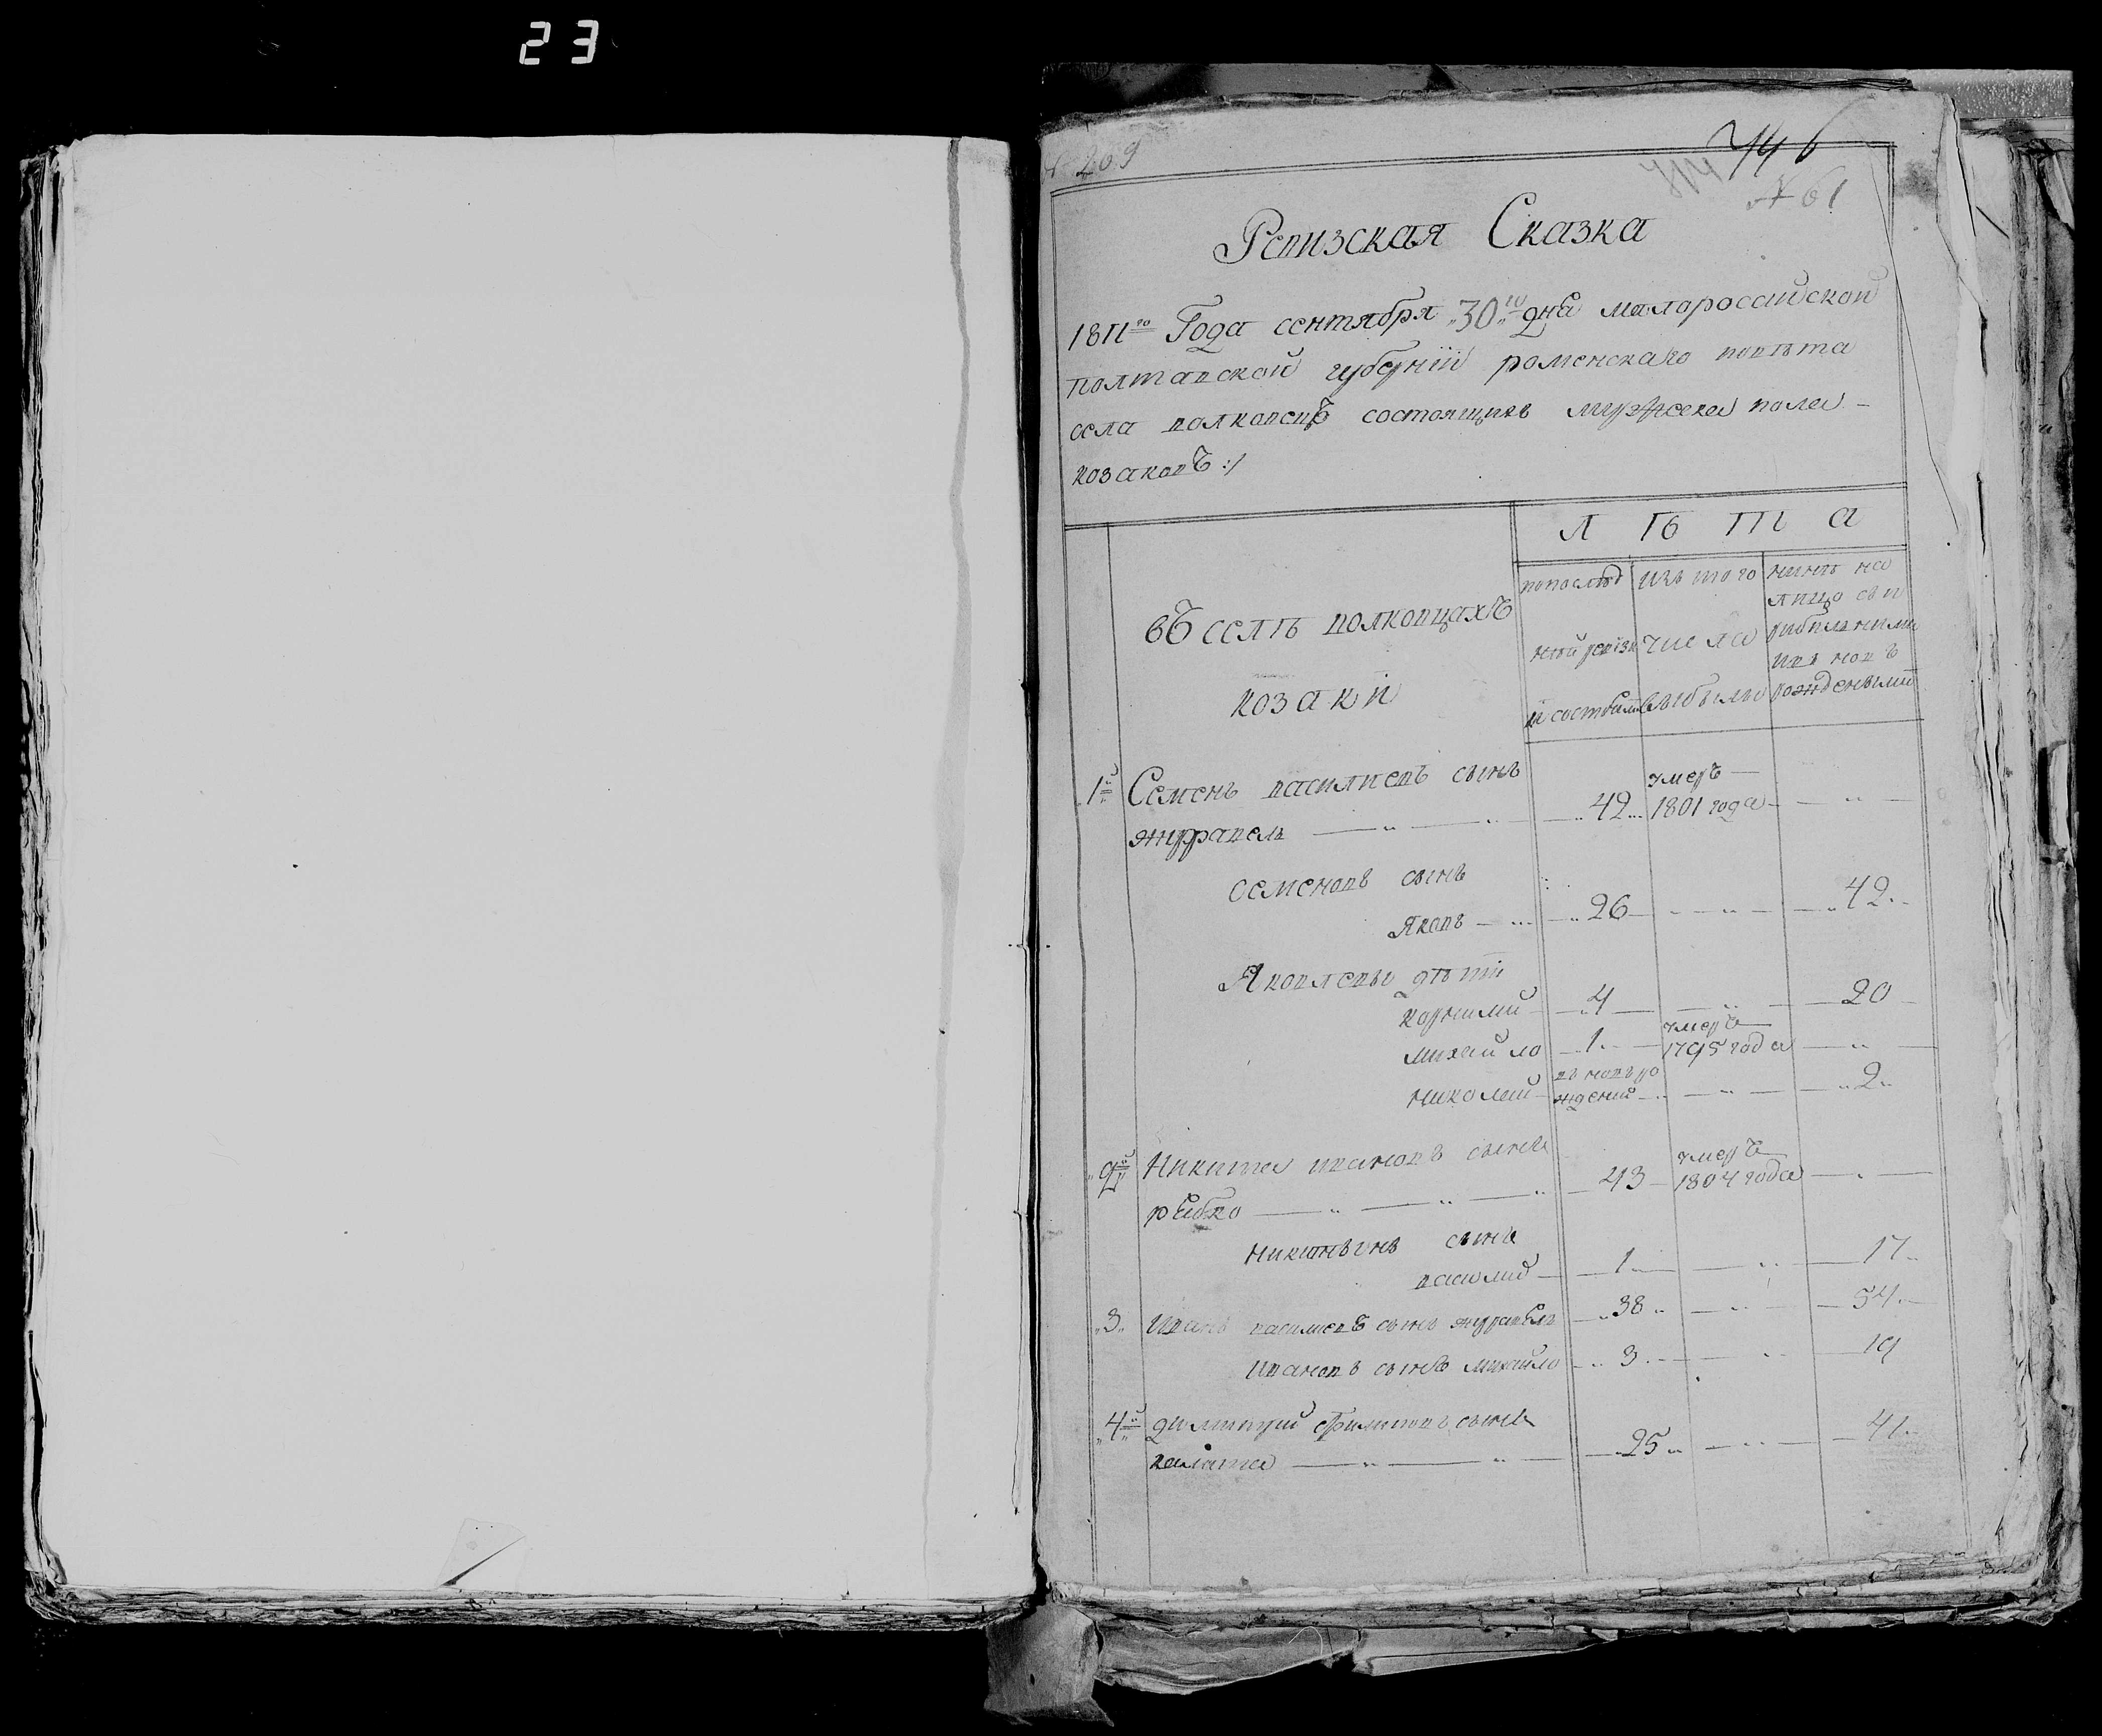 23
209
746
№ 61
Ревизская Сказка
1811го Года сентября „30„го дня малороссийской
полтавской губерніи роменскаго повѣта
села волковецъ состоящихъ мужска пола –
козаковъ :/
Л Ѣ Т А
въ селѣ волковцахъ
козаки
попослѣд
ней ревізи
и состояло
изъ того
числа
выбыло
нинѣ на
лицо съ п
рибылими
ивновъ
рожденными
„1й Семенъ василиевъ сынъ
журравель „42„ умеръ 1801 года – „ –
Семеновъ сынъ
яковъ – „26 – „ – „42„
Яковлевы дѣти
корнилий 4 – „ – 20
михайло 1 умеръ 1795 года – „ –
николай вновъ рожденый – „ – „2„
„2й Никита ивановъ сынъ
рыбко – „ – 43 умеръ 1804 года – „ –
никитинъ сынъ
василий 1 – „ – 17
„3„ Иванъ василиевъ сынъ журавель „38„ – „ – 54
Ивановъ сынъ михайло 3 – „ – 19
„4й димитрий филиповъ сынъ
калита – „ – 25 – „ – 41